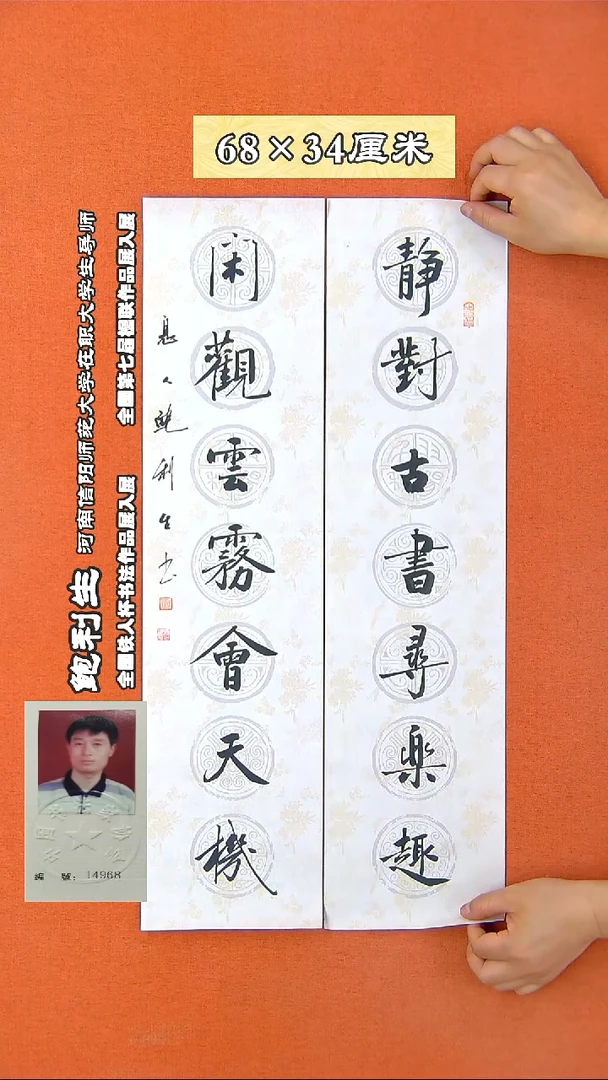 68×34厘米
静對古書尋楽趣
闲觀雲霧會天機
息人鲍利生书
鲍利生 河南信阳师范大学在职大学生导师
全国铁人杯书法作品展入展 全国第七届楹联作品展入展
编 號：14968